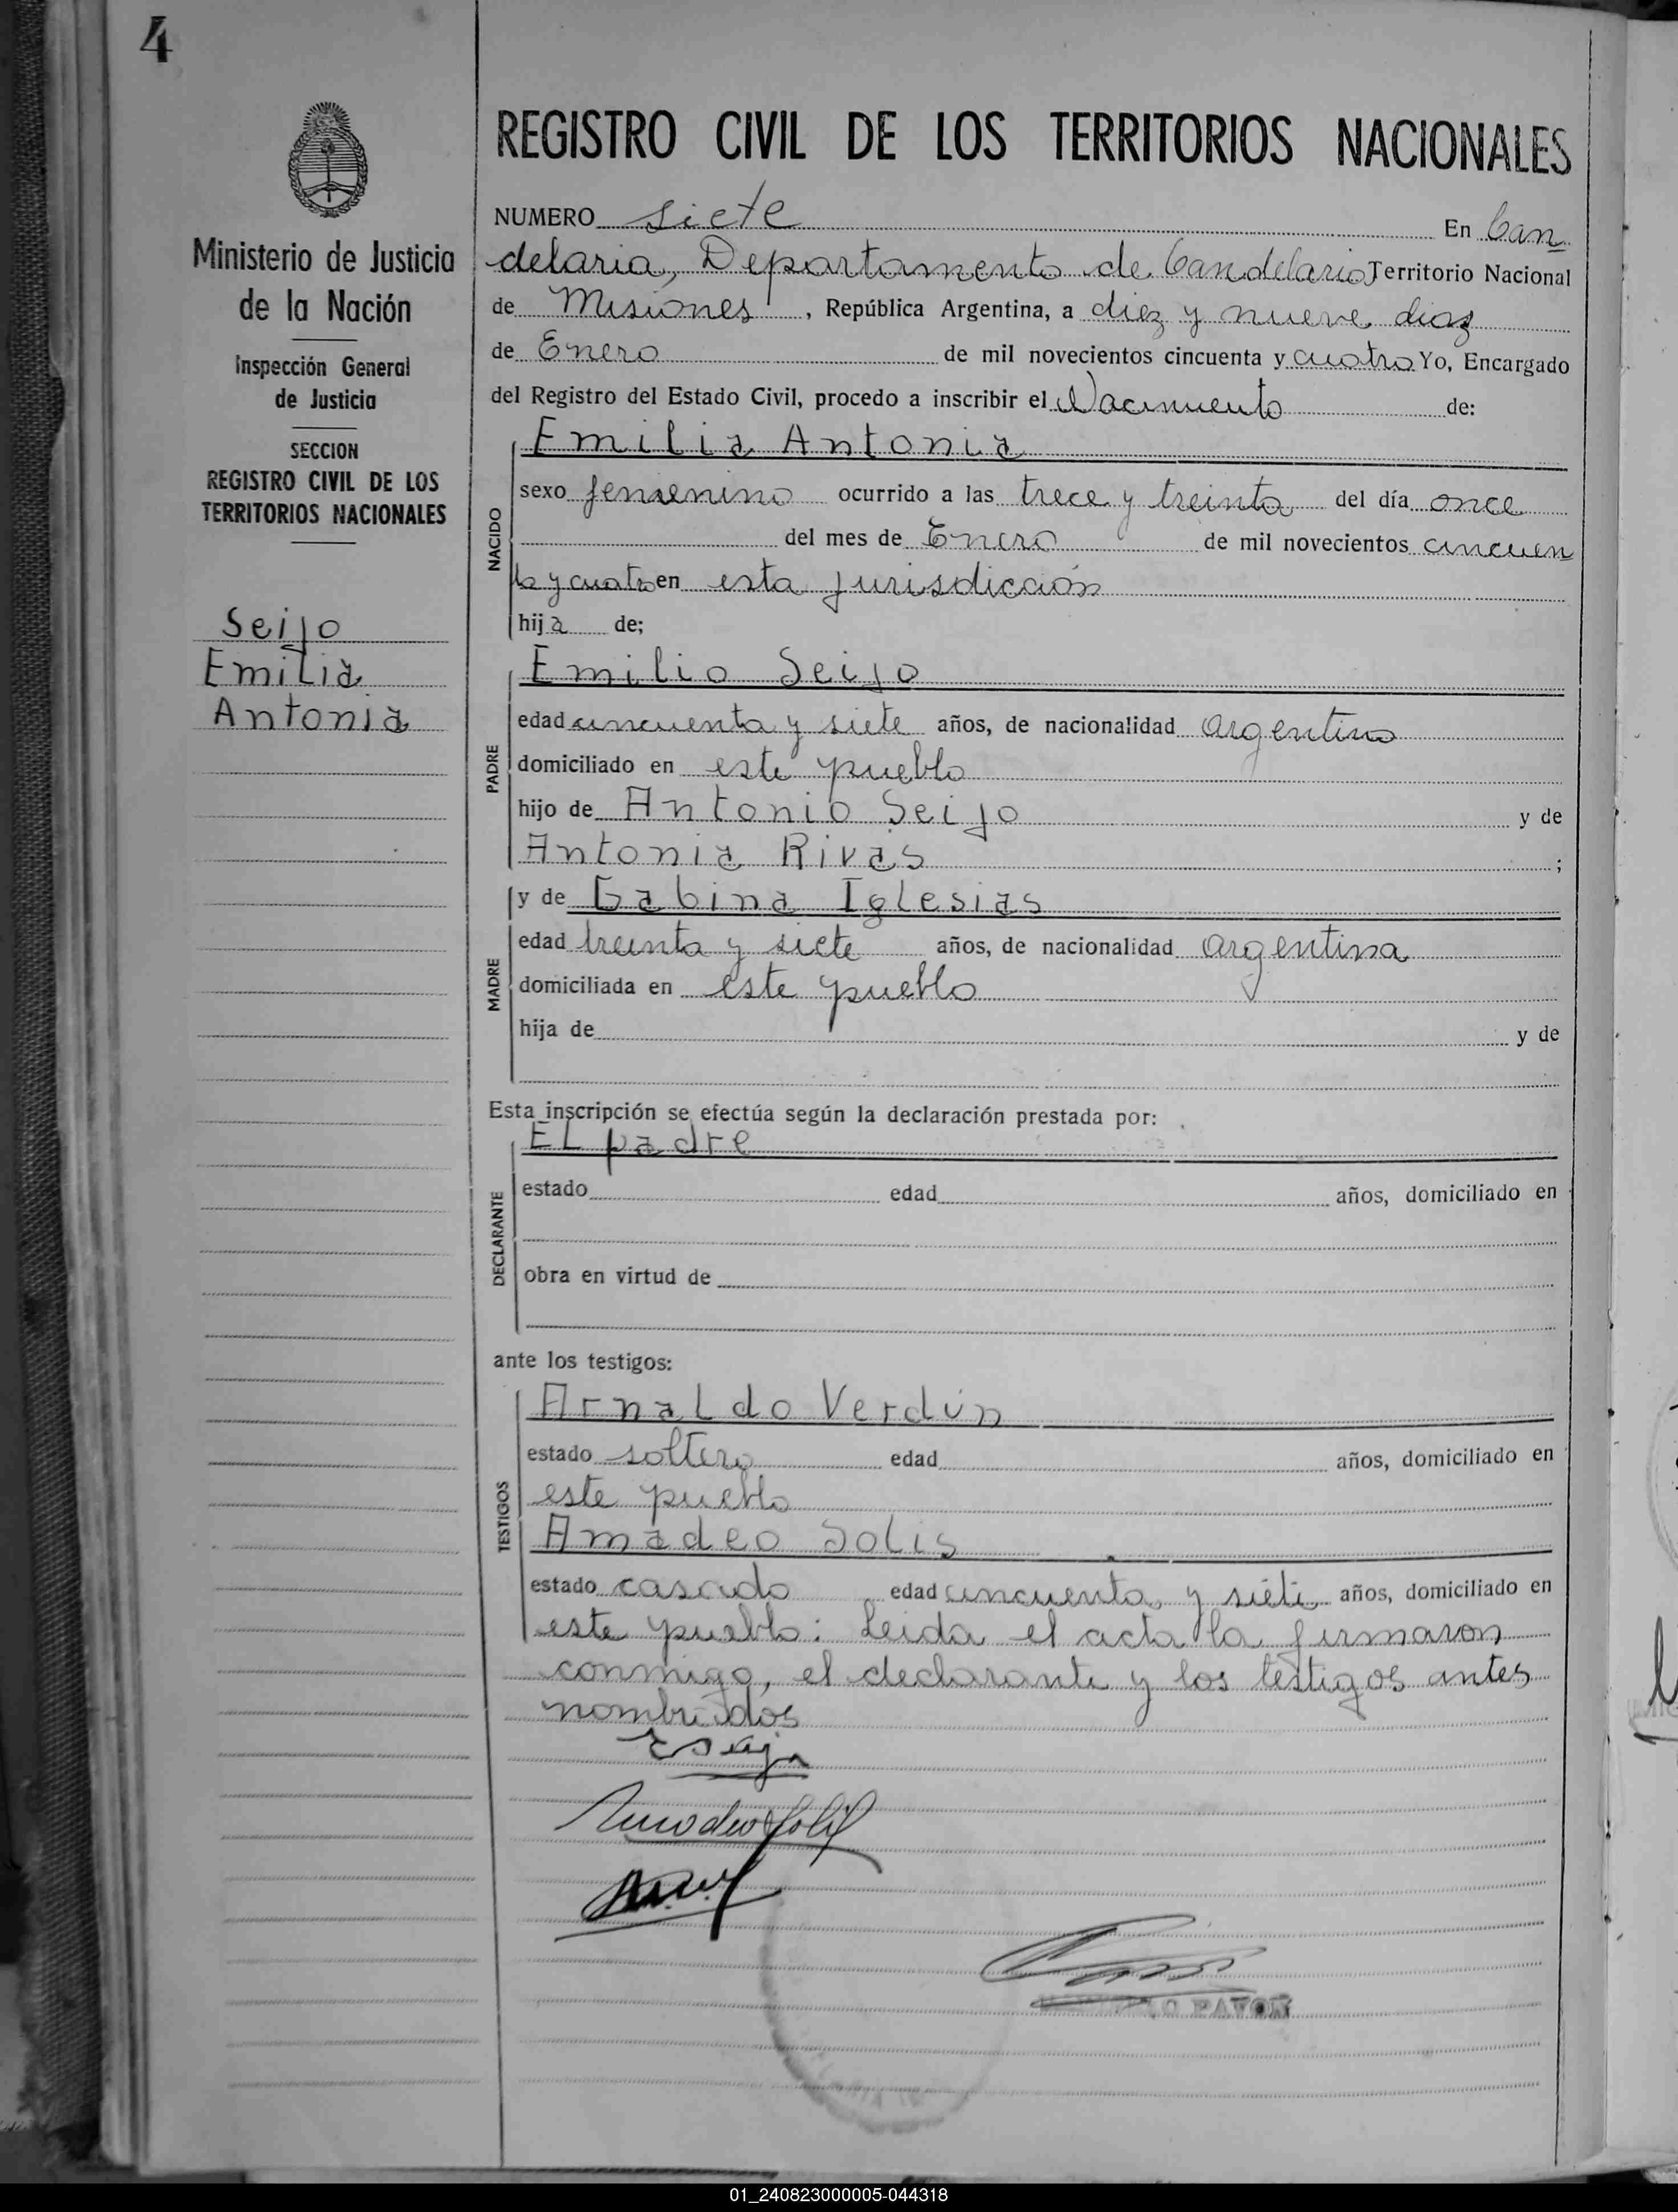 4
Ministerio de Justicia
de la Nación
Inspección General
de Justicia
SECCION
REGISTRO CIVIL DE LOS
TERRITORIOS NACIONALES
Seijo
Emilia
Antonia
REGISTRO CIVIL DE LOS TERRITORIOS NACIONALES
NUMERO siete En Can
delaria, Departamento de Candelaria Territorio Nacional
de Misiones, República Argentina, a diez y nueve dias
de Enero de mil novecientos cincuenta y cuatro Yo, Encargado
del Registro del Estado Civil, procedo a inscribir el Nacimiento de:
NACIDO
Emilia Antonia
sexo femenino ocurrido a las trece y treinta del día once
del mes de Enero de mil novecientos cincuen
ta y cuatro en esta jurisdicción
hija de;
PADRE
Emilio Seijo
edad cincuenta y siete años, de nacionalidad argentino
domiciliado en este pueblo
hijo de Antonio Seijo y de
Antonia Rivas ;
MADRE
y de Gabina Iglesias
edad treinta y siete años, de nacionalidad argentina
domiciliada en este pueblo
hija de y de
Esta inscripción se efectúa según la declaración prestada por:
DECLARANTE
El padre
estado edad años, domiciliado en
obra en virtud de
ante los testigos:
TESTIGOS
Arnaldo Verdún
estado soltero edad años, domiciliado en
este pueblo
Amadeo Solis
estado casado edad cincuenta y siete años, domiciliado en
este pueblo: Leida el acta la firmaron
conmigo, el declarante y los testigos antes
nombrados
Amadeo Solis
PAVON
01_240823000005-044318